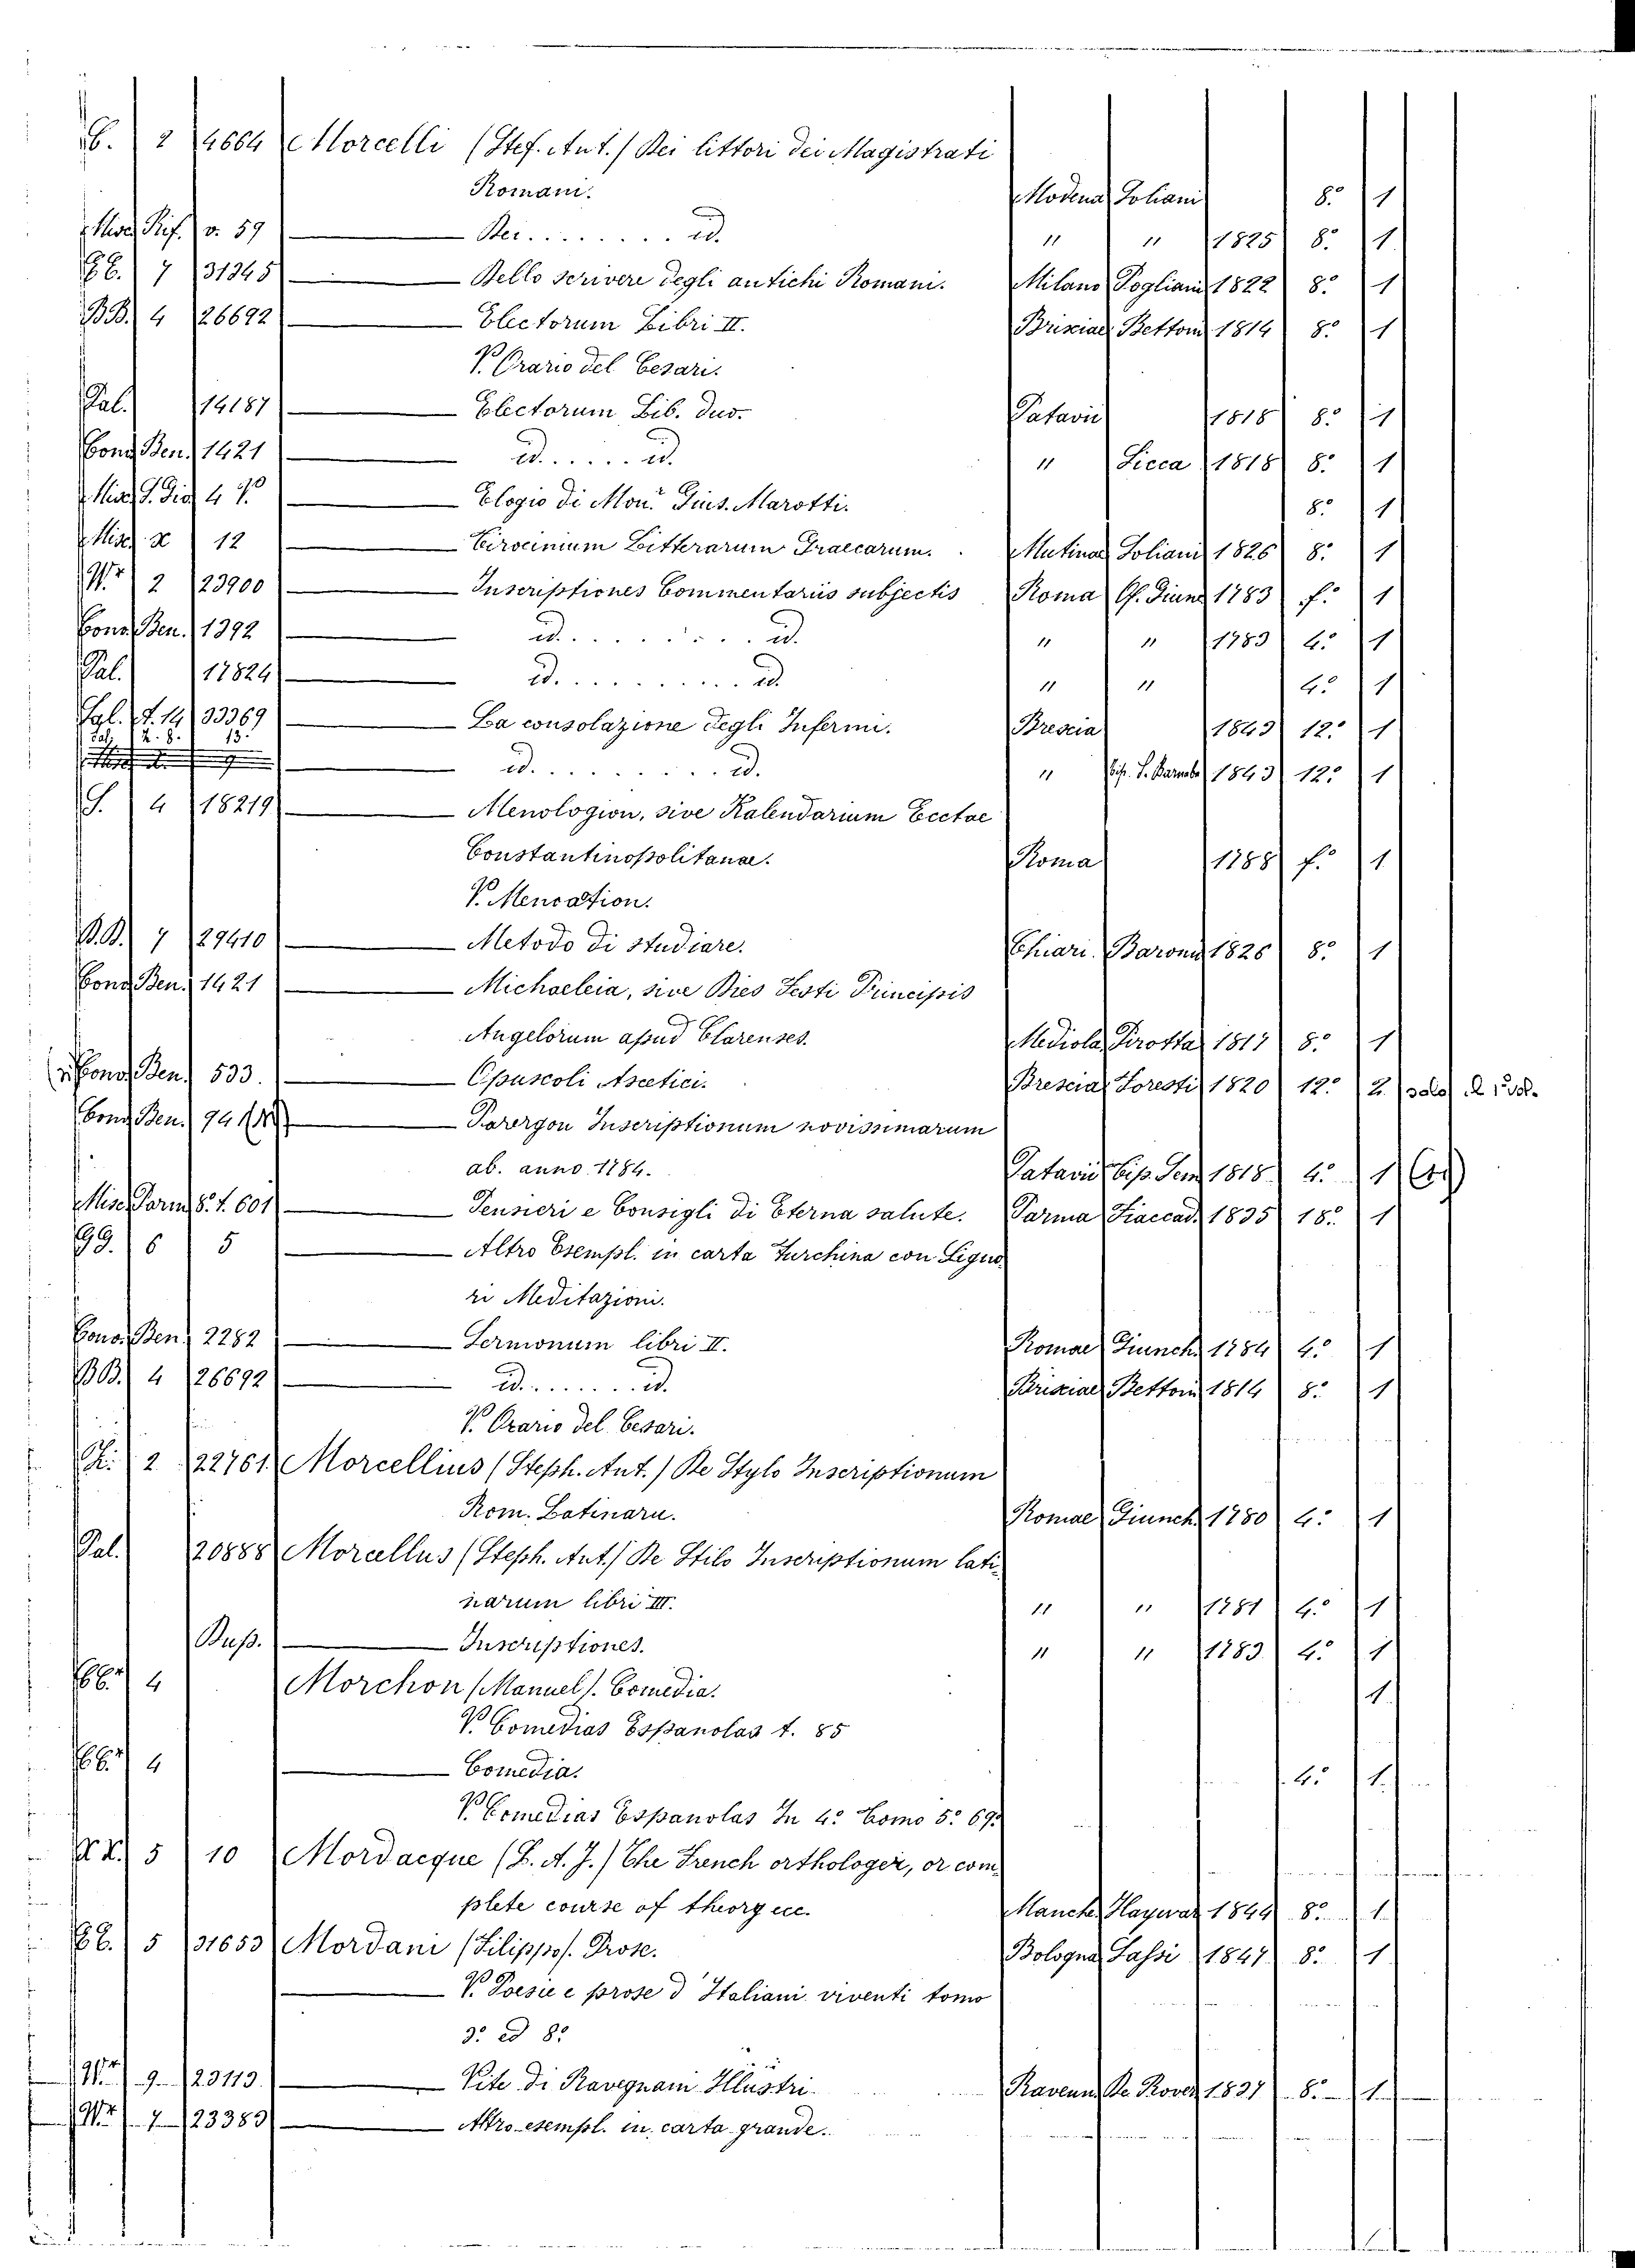 B. 2 4664 Morcelli (Stef. Ant.) Dei littori dei Magistrati
Romani. Modena Soliani 8.º 1
Misc. Rif. v. 59 Dei......... id. " " 1825 8.º 1
BB. 7 31345 Dello scrivere degli antichi Romani. Milano Pogliani 1822 8.º 1
BB. 4 26692 Electorum Libri II. Brixiae Bettoni 1814 8.º 1
V. Orario del Cesari.
Pal. 14187 Electorum Lib. duo. Patavii 1818 8.º 1
Cono. Ben. 1421 id...... id. " Sicca 1818 8.º 1
Elogio di Mon.r Gius. Marotti. 8.º 1
Misc. 12 Tirocinium Litterarum Graecarum. Mutinae Soliani 1826 8.º 1
2 23900 Inscriptiones Commentariis subjectis Roma Of. Giunc 1783 f.º 1
Cono. Ben. 1392 id......... id. " " 1783 4.º 1
Pal. 17824 id......... id. " " 4.º 1
Sal. t. 14 33369 La consolazione degli Infermi. Brescia 1843 12.º 1
Sal. 2. 8. 13.
id......... id. " tip. S. Barnaba 1843 12.º 1
S. 4 18219 Menologion, sive Kalendarium Ecctae
Constantinopolitanae. Roma 1788 f.º 1
V. Menration.
B.B. 7 29410 Metodo di studiare. Chiari. Baroni 1826 8.º 1
Cono. Ben. 1421 Michaeleia, sive Dies Festi Principis
Angelorum apud Clarenses. Mediola Pirotta 1817 8.º 1
Cono. Ben. 533. Opuscoli Ascetici. Brescia Foresti 1820 12.º 2. solo il 1.º vol.
Cono. Ben. 941 Parergon Inscriptionum novissimarum
ab. anno 1784. Patavii tip. Sem 1818 4.º 1
Misc. Parm. 8.º t. 601 Pensieri e Consigli di Eterna salute. Parma Fiaccad. 1835 18.º 1
99. 6 5 Altro Esempl. in carta turchina con Liguo
ri Meditazioni.
Cono. Ben. 2282 Sermonum libri II. Romae Giunch. 1784 4.º 1
BB. 4 26692 id......... id. Brixiae Bettoni 1814 8.º 1
V. Orario del Cesari.
2 22761. Morcellius (Steph. Ant.) De Stylo Inscriptionum
Rom. Latinaru. Romae Giunch. 1780 4.º 1
Pal. 20888 Morcellus (Steph. Ant.) De Stilo Inscriptionum lati-
narum libri III. " " 1781 4.º 1
Dup. Inscriptiones. " " 1783. 4.º 1
4 Morchon (Manuel). Comedia. 1.
V. Comedias Espanolas t. 85
4 Comedia. 4.º 1.
V. Comedias Espanolas In 4.º Tomo 5.º 69.
5 10 Mordacque (L. A. J.) The French orthologer, or com-
plete course of theory ecc. Manche. Haywar 1844 8.º 1.
5 31653 Mordani (Filippo). Prose. Bologna Sassi 1847 8.º 1
V. Poesie e prose d' Italiani viventi tomo
3.º ed 8.º
9 23113. Vite di Ravegnani Illustri. Ravenna De Rover 1837 8.º 1.
7 23383 Altro esempl. in carta grande.